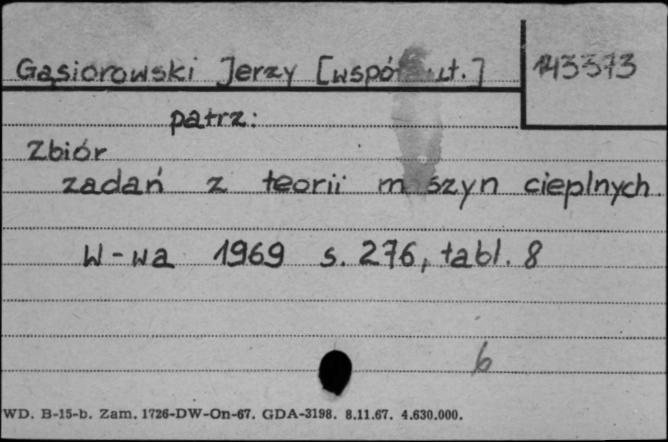 Gąsiorowski Jerzy [współaut.]
143373
patrz:
Zbiór
zadań z teorii maszyn cieplnych
W-wa 1969 s. 276, tabl. 8
6
WD. B-15-b. Zam. 1726-DW-On-67. GDA-3198. 8.11.67. 4.630.000.